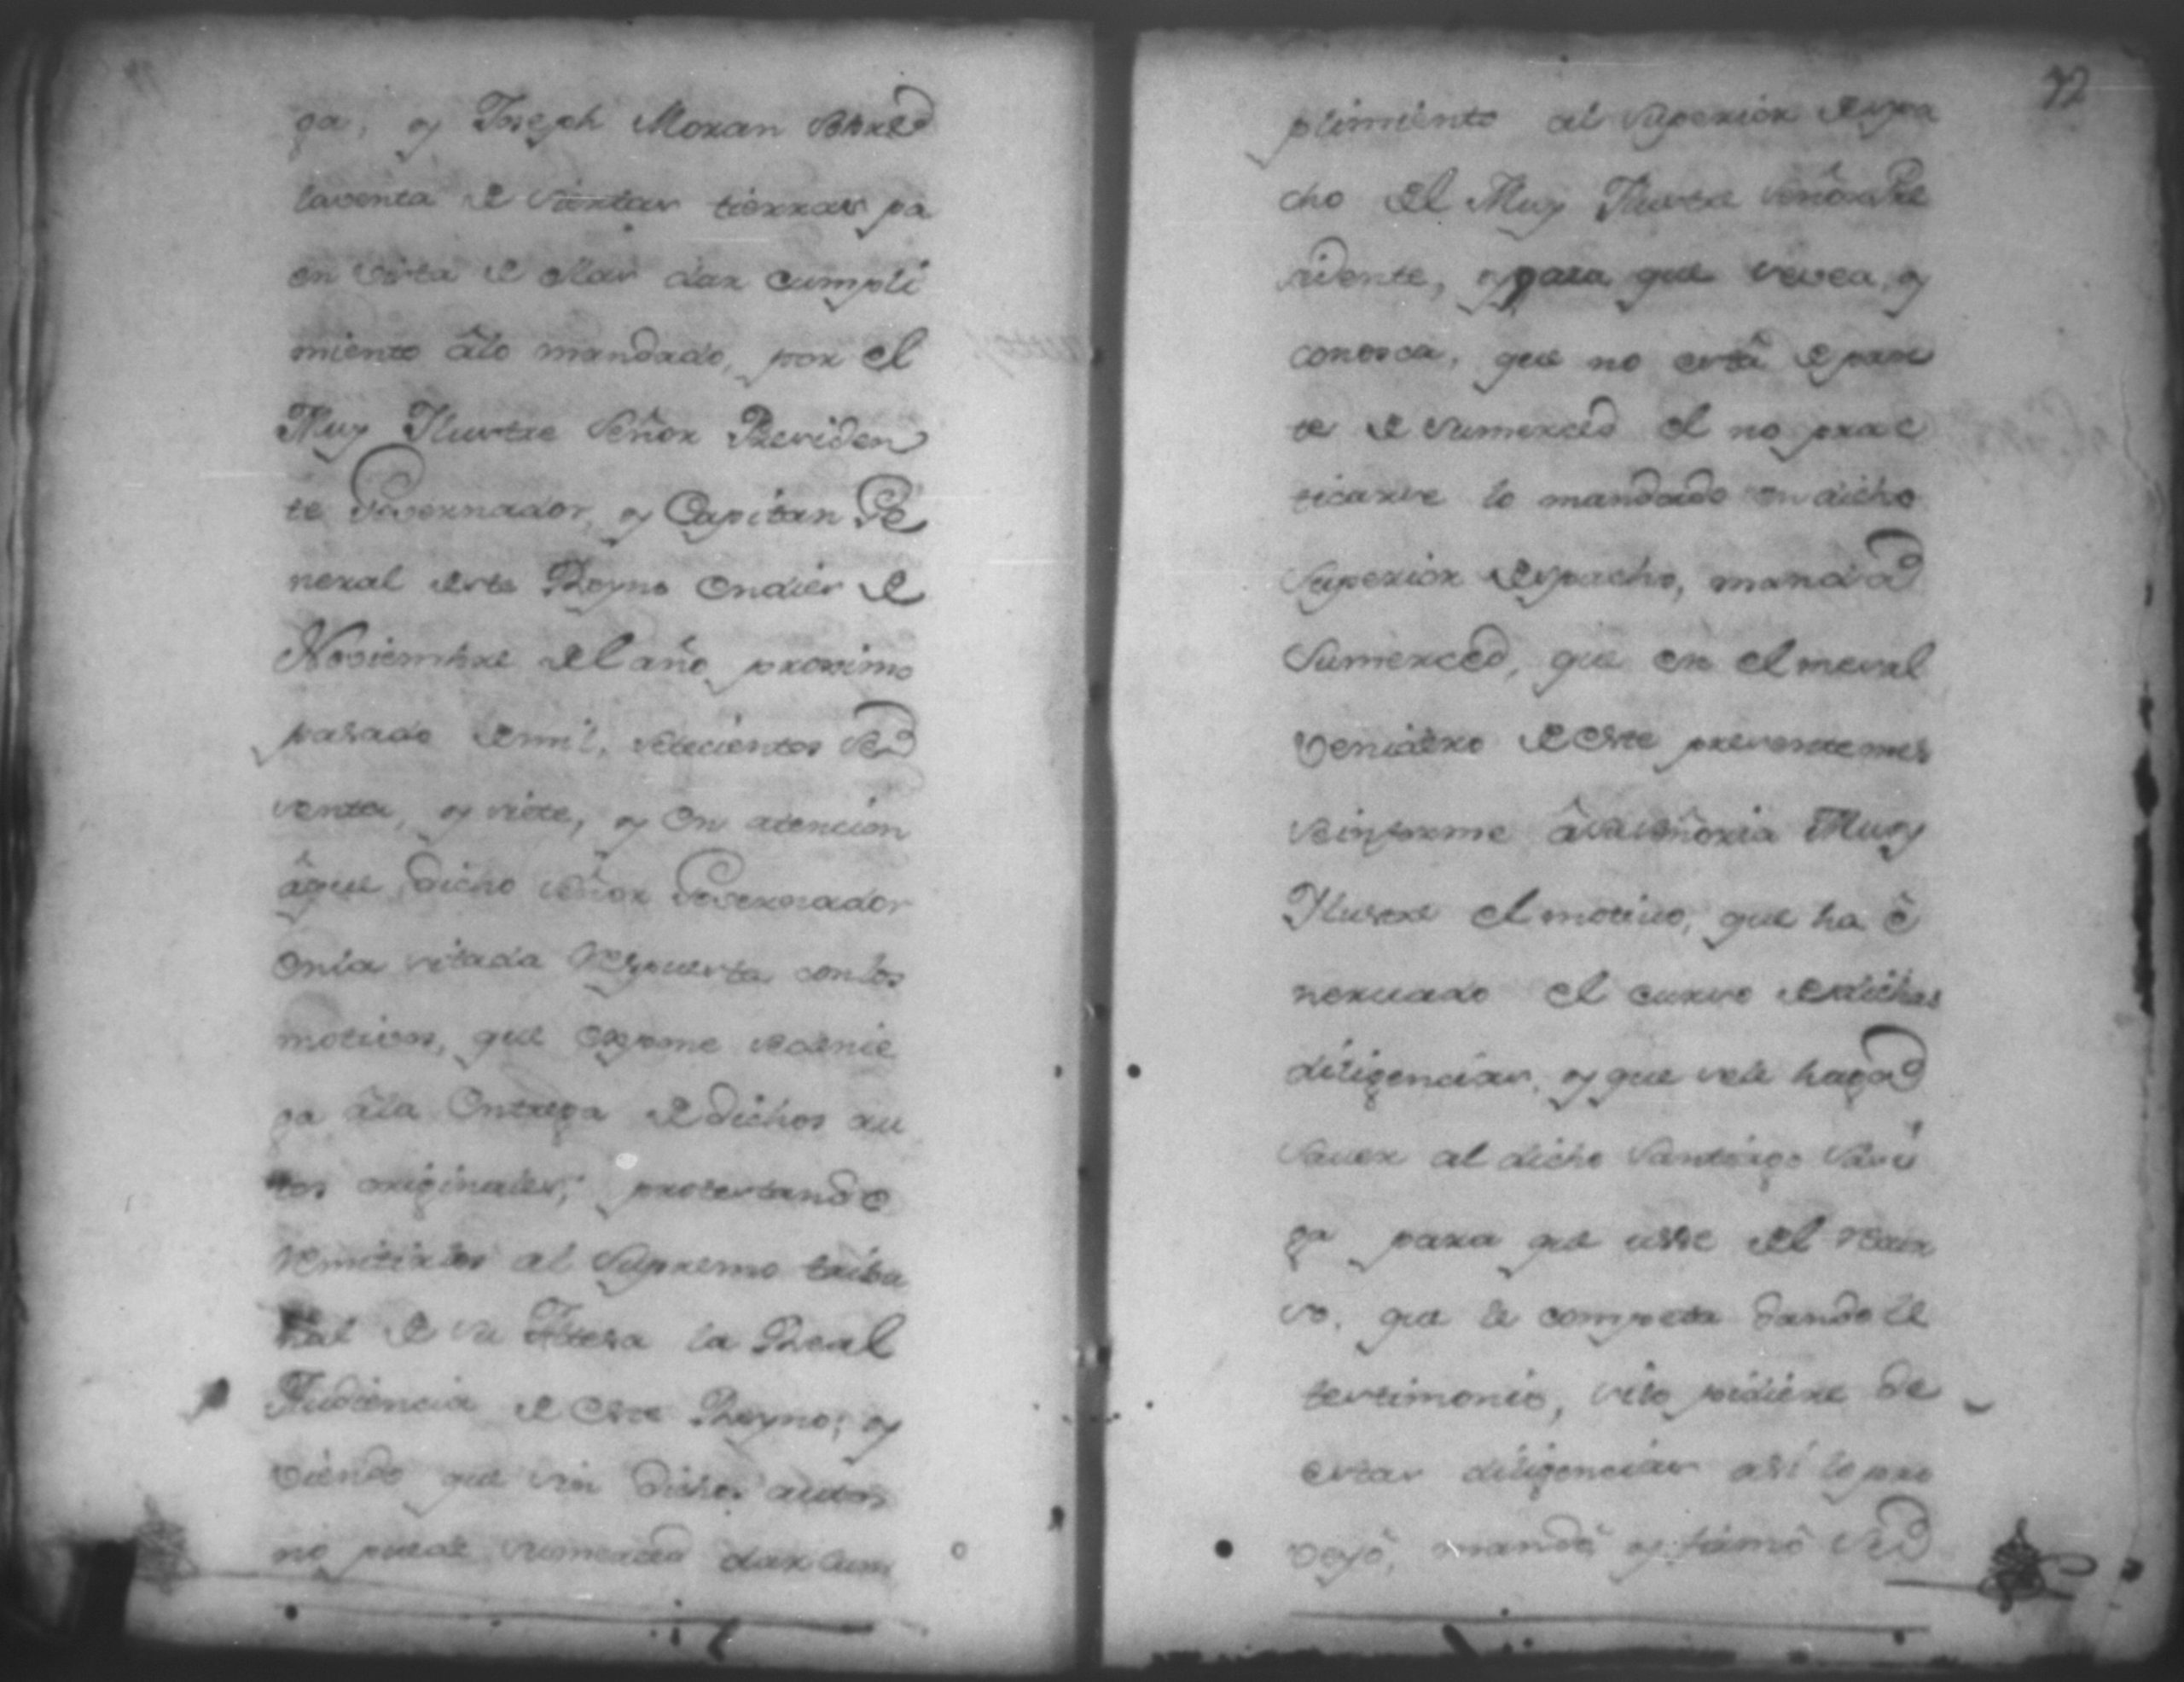 ga, y Joseph Moran sobre
la venta de siertas tierras pa
en vista de ellas dar cumpli
miento â lo mandado, por el
Muy Ilustre Señor Presiden
te Governador, y Capitan Ge
neral deste Reyno en dies de
Noviembre del año proximo
pasado de mil, setecientos se
senta, y siete, y en atencion
âque dicho Señor Governador
en la citada Respuesta con los
motivos, que expone se denie
ga âla Entrega de dichos au
tos originales, protestando
Remitirlos al Supremo tribu
nal de su Alteza la Real
Audiencia de este Reyno; y
viendo que sin dichos autos
no puede sumerced dar cum
72
plimiento al Superior despa
cho del Muy Ilustre Señor Pre
sidente, y para que se vea, y
conosca, que no está de par
te de sumerced el no prac
ticarse lo mandado en dicho
Superior despacho, manda
Sumerced, que en el mensal
venidero de este presente mes
se informe â su señoria Muy
Ilustre el motivo, que ha e
nervado el curso de dichas
diligencias, y que se le haga
saver al dicho Santiago
ga para que usse del recur
so, que le competa dandole
testimonio, si lo pidiere de
estas diligencias assi lo pro
veyô, mandô, y firmô